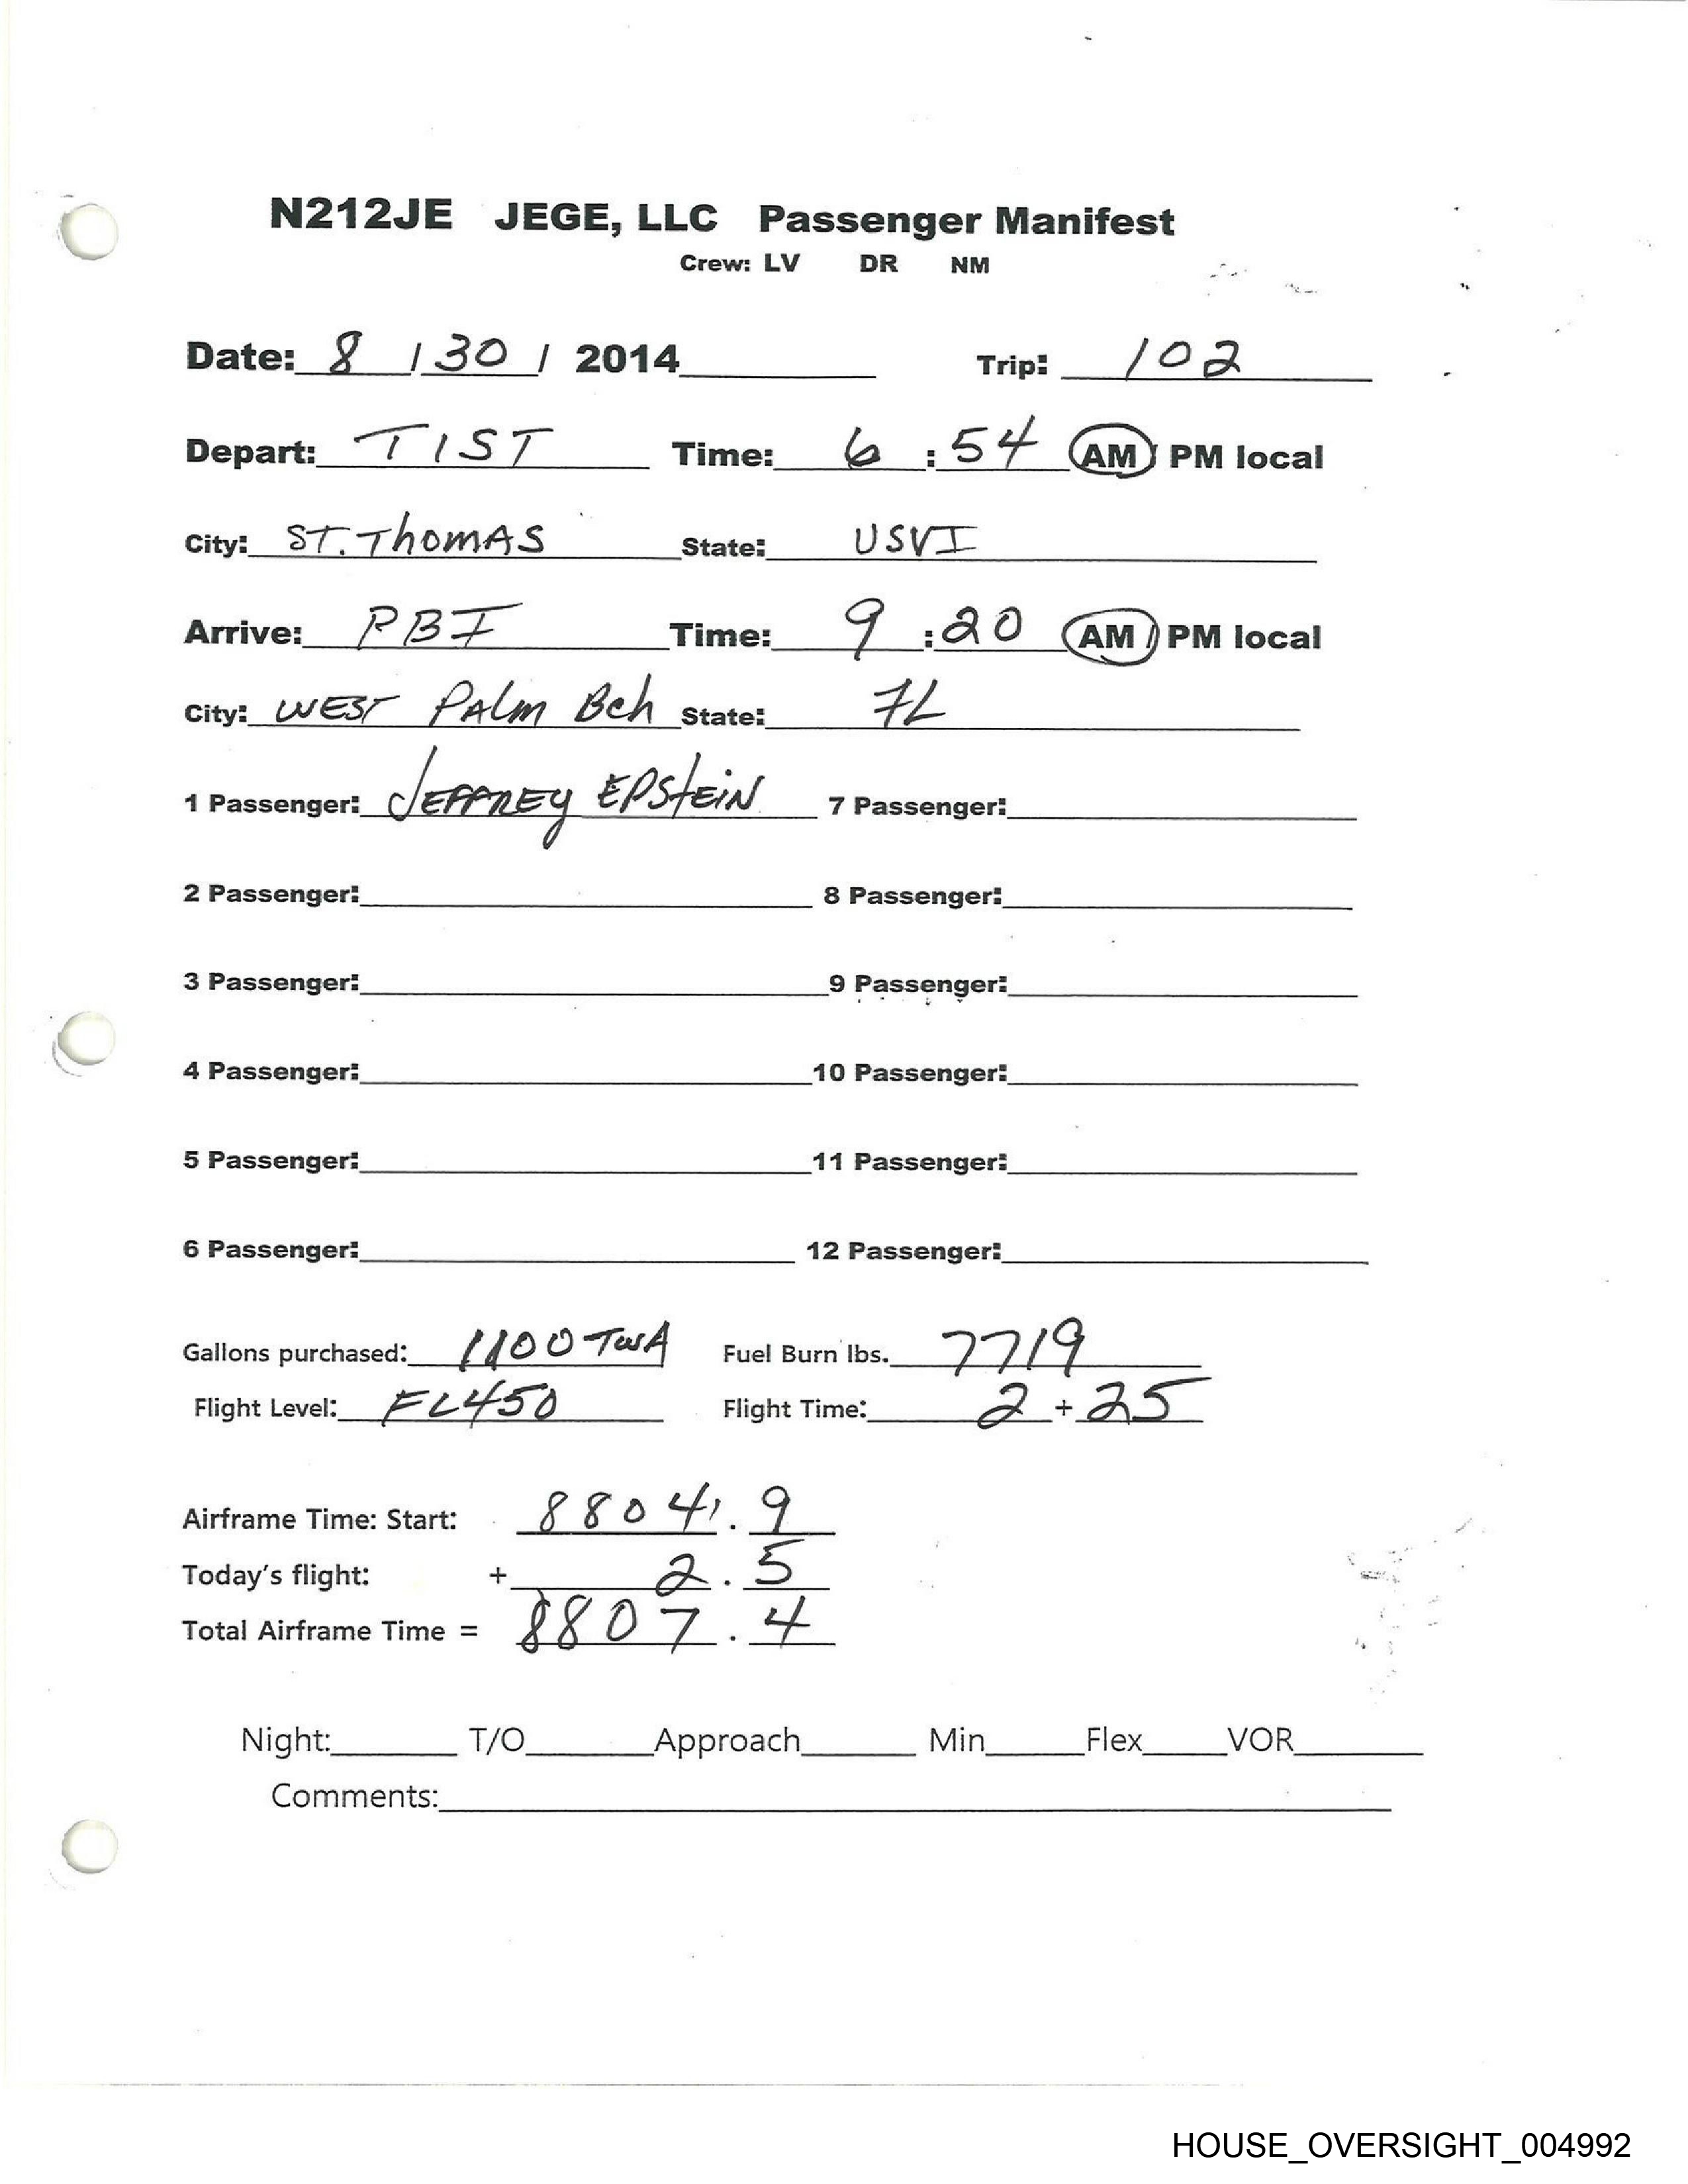 N212JE JEGE, LLC Passenger Manifest
Crew: LV DR NM
Date: 8 / 30 / 2014 Trip: 102
Depart: TIST Time: 6 : 54 AM / PM local
City: ST. ThomAS State: USVI
Arrive: PBI Time: 9 : 20 AM / PM local
City: WEST PAlm Bch State: FL
1 Passenger: JEFFREY EPStEiN 7 Passenger:
2 Passenger: 8 Passenger:
3 Passenger: 9 Passenger:
4 Passenger: 10 Passenger:
5 Passenger: 11 Passenger:
6 Passenger: 12 Passenger:
Gallons purchased: 1100 TWA Fuel Burn lbs. 7719
Flight Level: FL450 Flight Time: 2 + 25
Airframe Time: Start: 8804.9
Today's flight: + 2.5
Total Airframe Time = 8807.4
Night: T/O Approach Min Flex VOR
Comments:
HOUSE_OVERSIGHT_004992